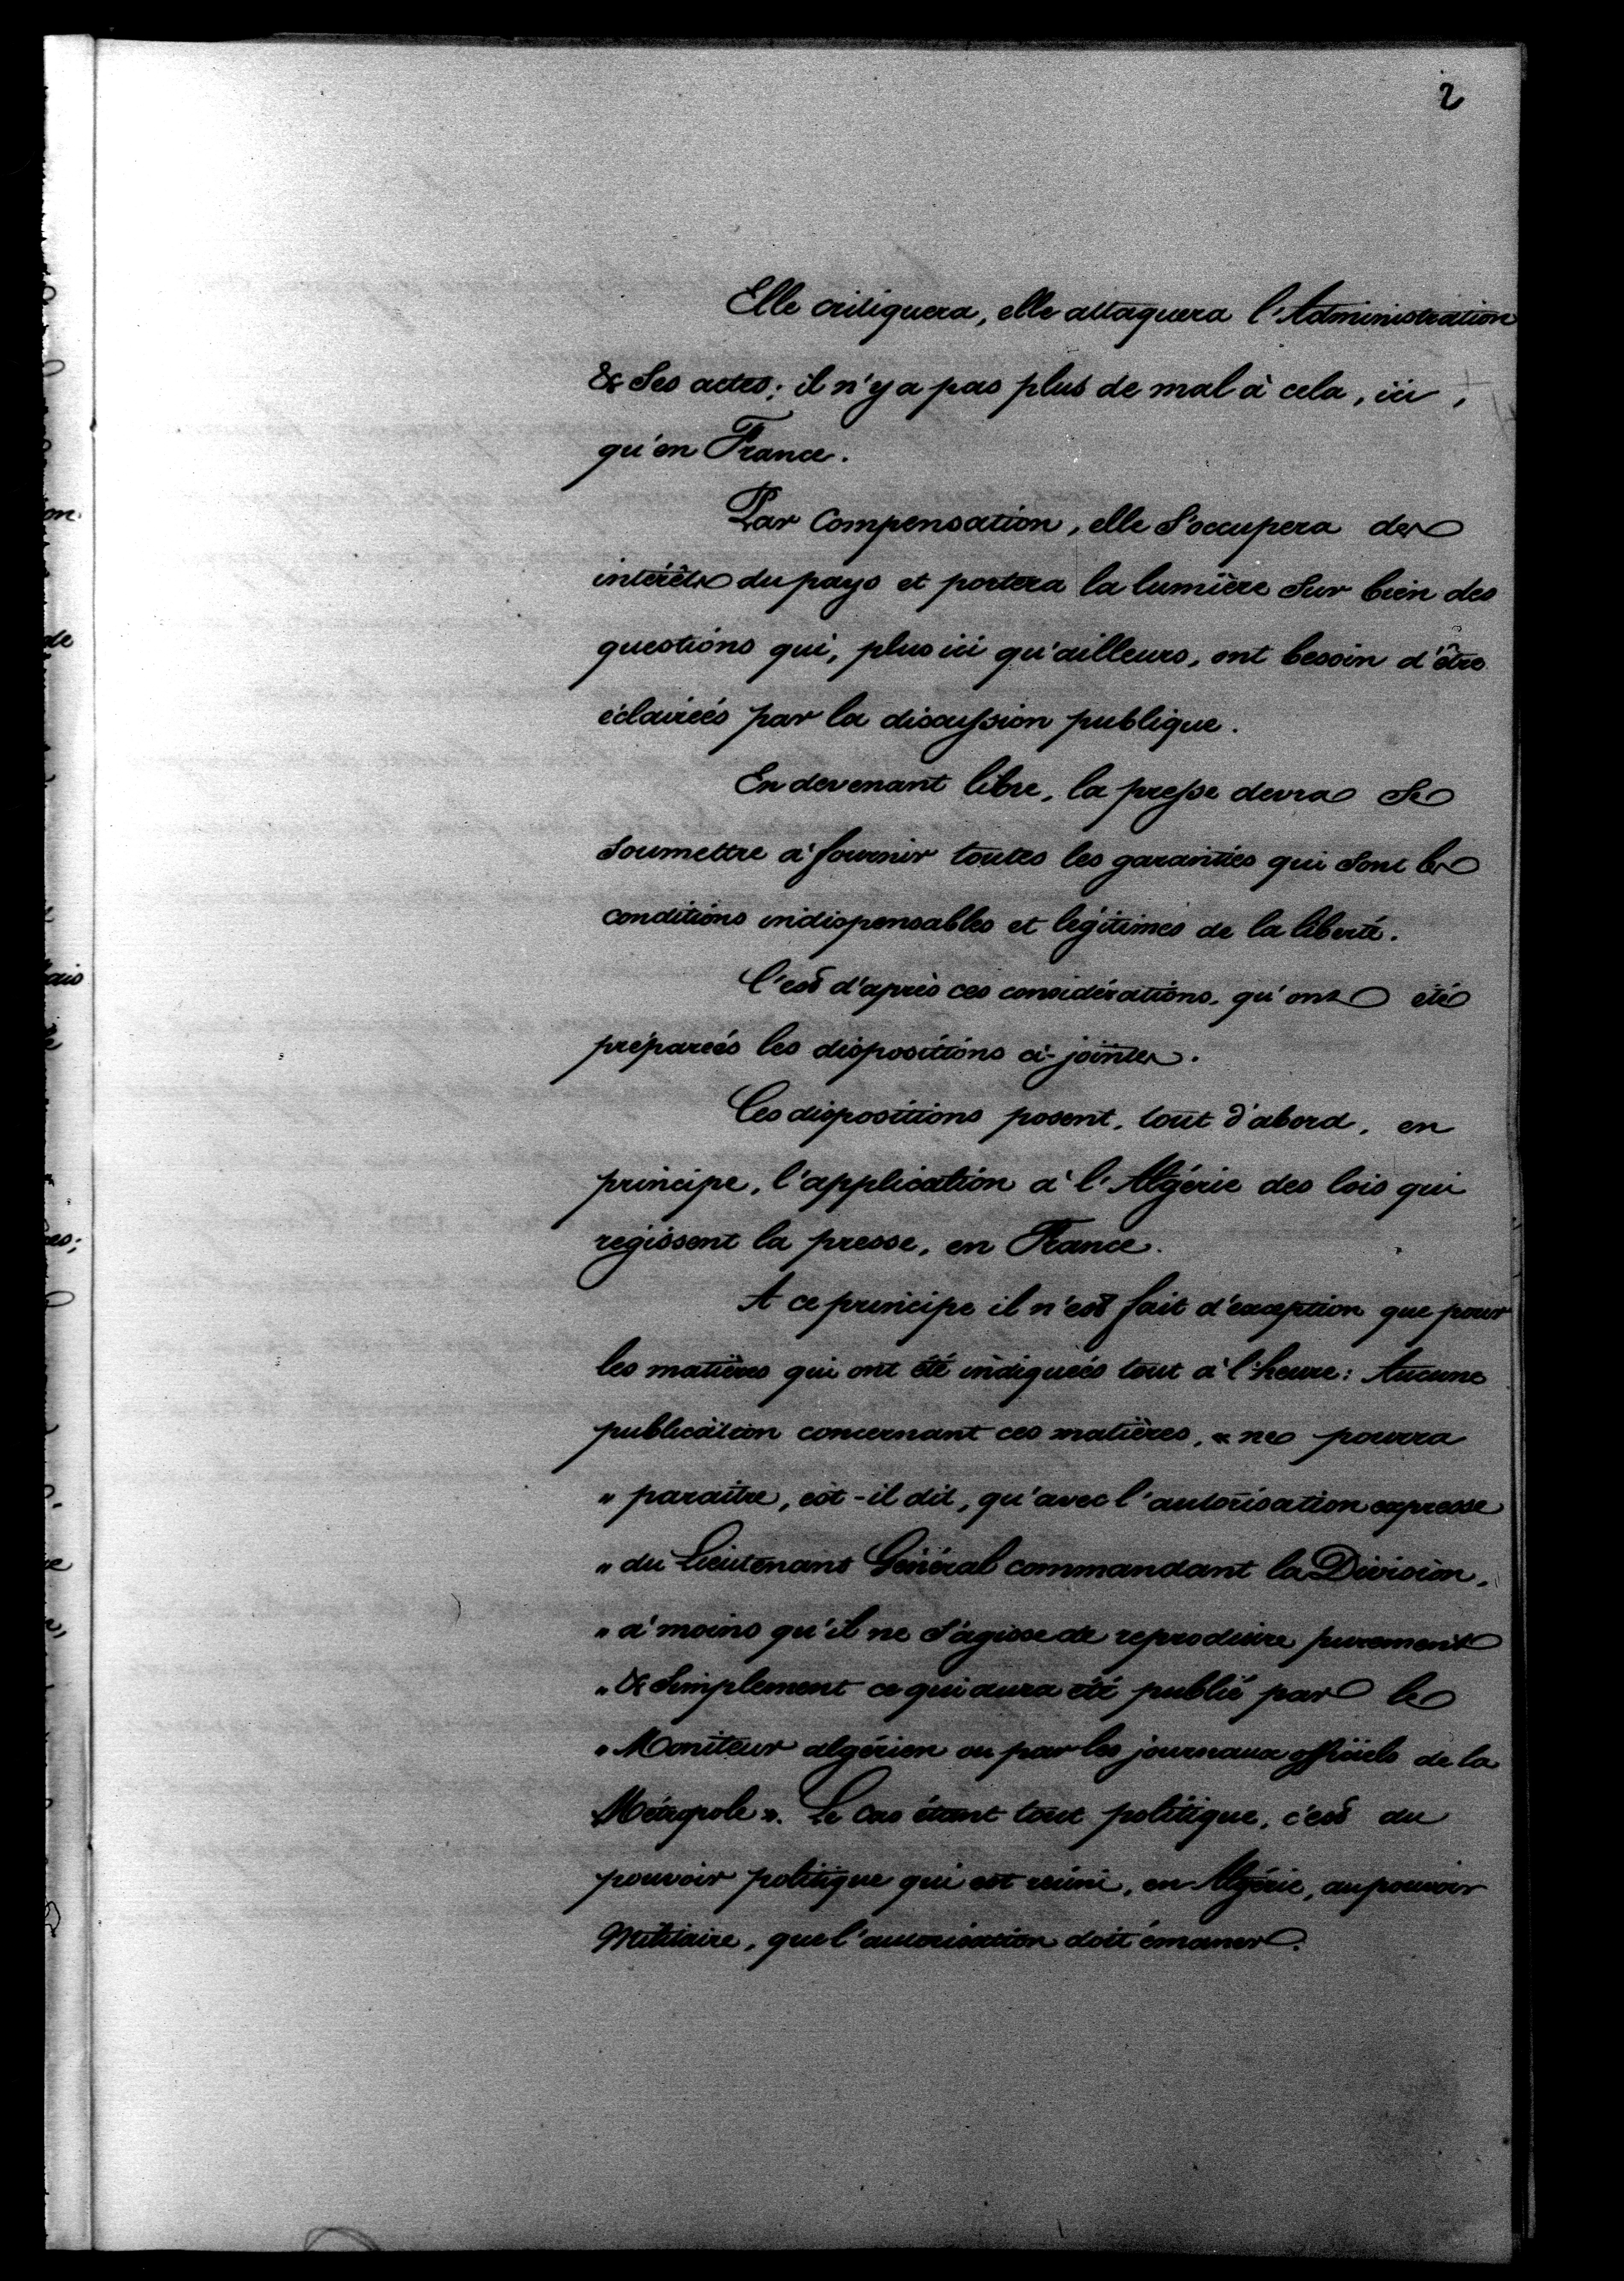 2
Elle critiquera, elle attaquera l'Administration
& ses actes; il n'y a pas plus de mal à cela, ici,
qu'en France.
Par compensation, elle s'occupera des
intérêts du pays et portera la lumière sur bien des
questions qui, plus ici qu'ailleurs, ont besoin d'être
éclairées par la discussion publique.
En devenant libre, la presse devra se
soumettre à fournir toutes les garanties qui sont les
conditions indispensables et légitimes de la liberté.
C'est d'après ces considérations, qu'ont été
préparées les dispositions ci-jointes.
Ces dispositions posent, tout d'abord, en
principe, l'application à l'Algérie des lois qui
régissent la presse, en France.
A ce principe il n'est fait d'exception que pour
les matières qui ont été indiquées tout à l'heure: Aucune
publication concernant ces matières, « ne pourra
" paraître, est-il dit, qu'avec l'autorisation expresse
" du Lieutenant Général commandant la Division,
" à moins qu'il ne s'agisse de reproduire purement
" & simplement ce qui aura été publié par le
" Moniteur algérien ou par les journaux officiels de la
Métropole ». Le cas étant tout politique, c'est du
pouvoir politique qui est réuni, en Algérie, au pouvoir
Militaire, que l'autorisation doit émaner.
on.
de
ais
le
es;